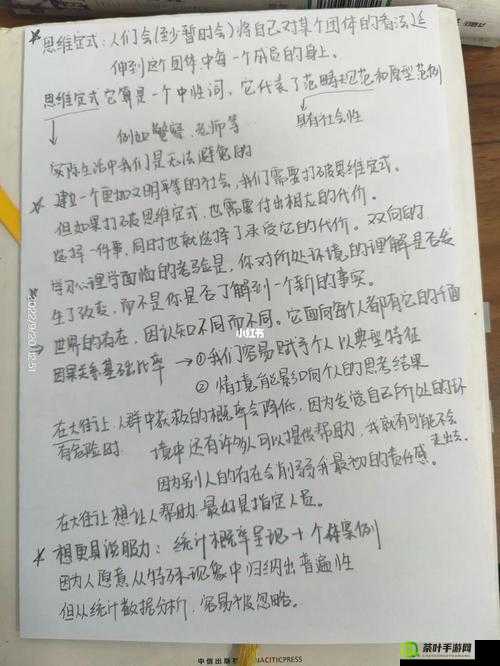 思维定式：人们会(至少暂时会)将自己对某个团体的看法延
伸到这个团体中每一个成员的身上。
思维定式它算是一个中性词，它代表了范畴规范和原型范例
具有社会性
例如警察、老师等
实际生活中我们是无法避免的
建立一个更加文明平等的社会，我们需要打破思维定式。
但如果打破思维定式，也需要付出相应的代价。
选择一件事，同时也就选择了承受它的代价。双向的
学习心理学面临的考验是，你对所处环境的理解是否发
生了改变，而不是你是否了解到一个新的事实。
世界的存在，因认知不同而不同。它面向每个人都有它的千面
因果关系基础比率 → ①我们容易赋予个人以典型特征
②情境能影响个人的思考结果
在大街上，人群中获救的概率会降低，因为发觉自己所处的环
有危险时 境中还有许多人可以提供帮助，我就有可能不会
走出去。
因为别人的存在会削弱我最初的责任感。
在大街上想让人帮助，最好是指定人员。
想更具说服力：统计概率呈现+个体案例
因为人愿意从特殊现象中归纳出普遍性
但从统计数据分析，容易被忽略。
2022/9/20 12:51
小红书
中信出版 CITICPRESS
茶叶手游网